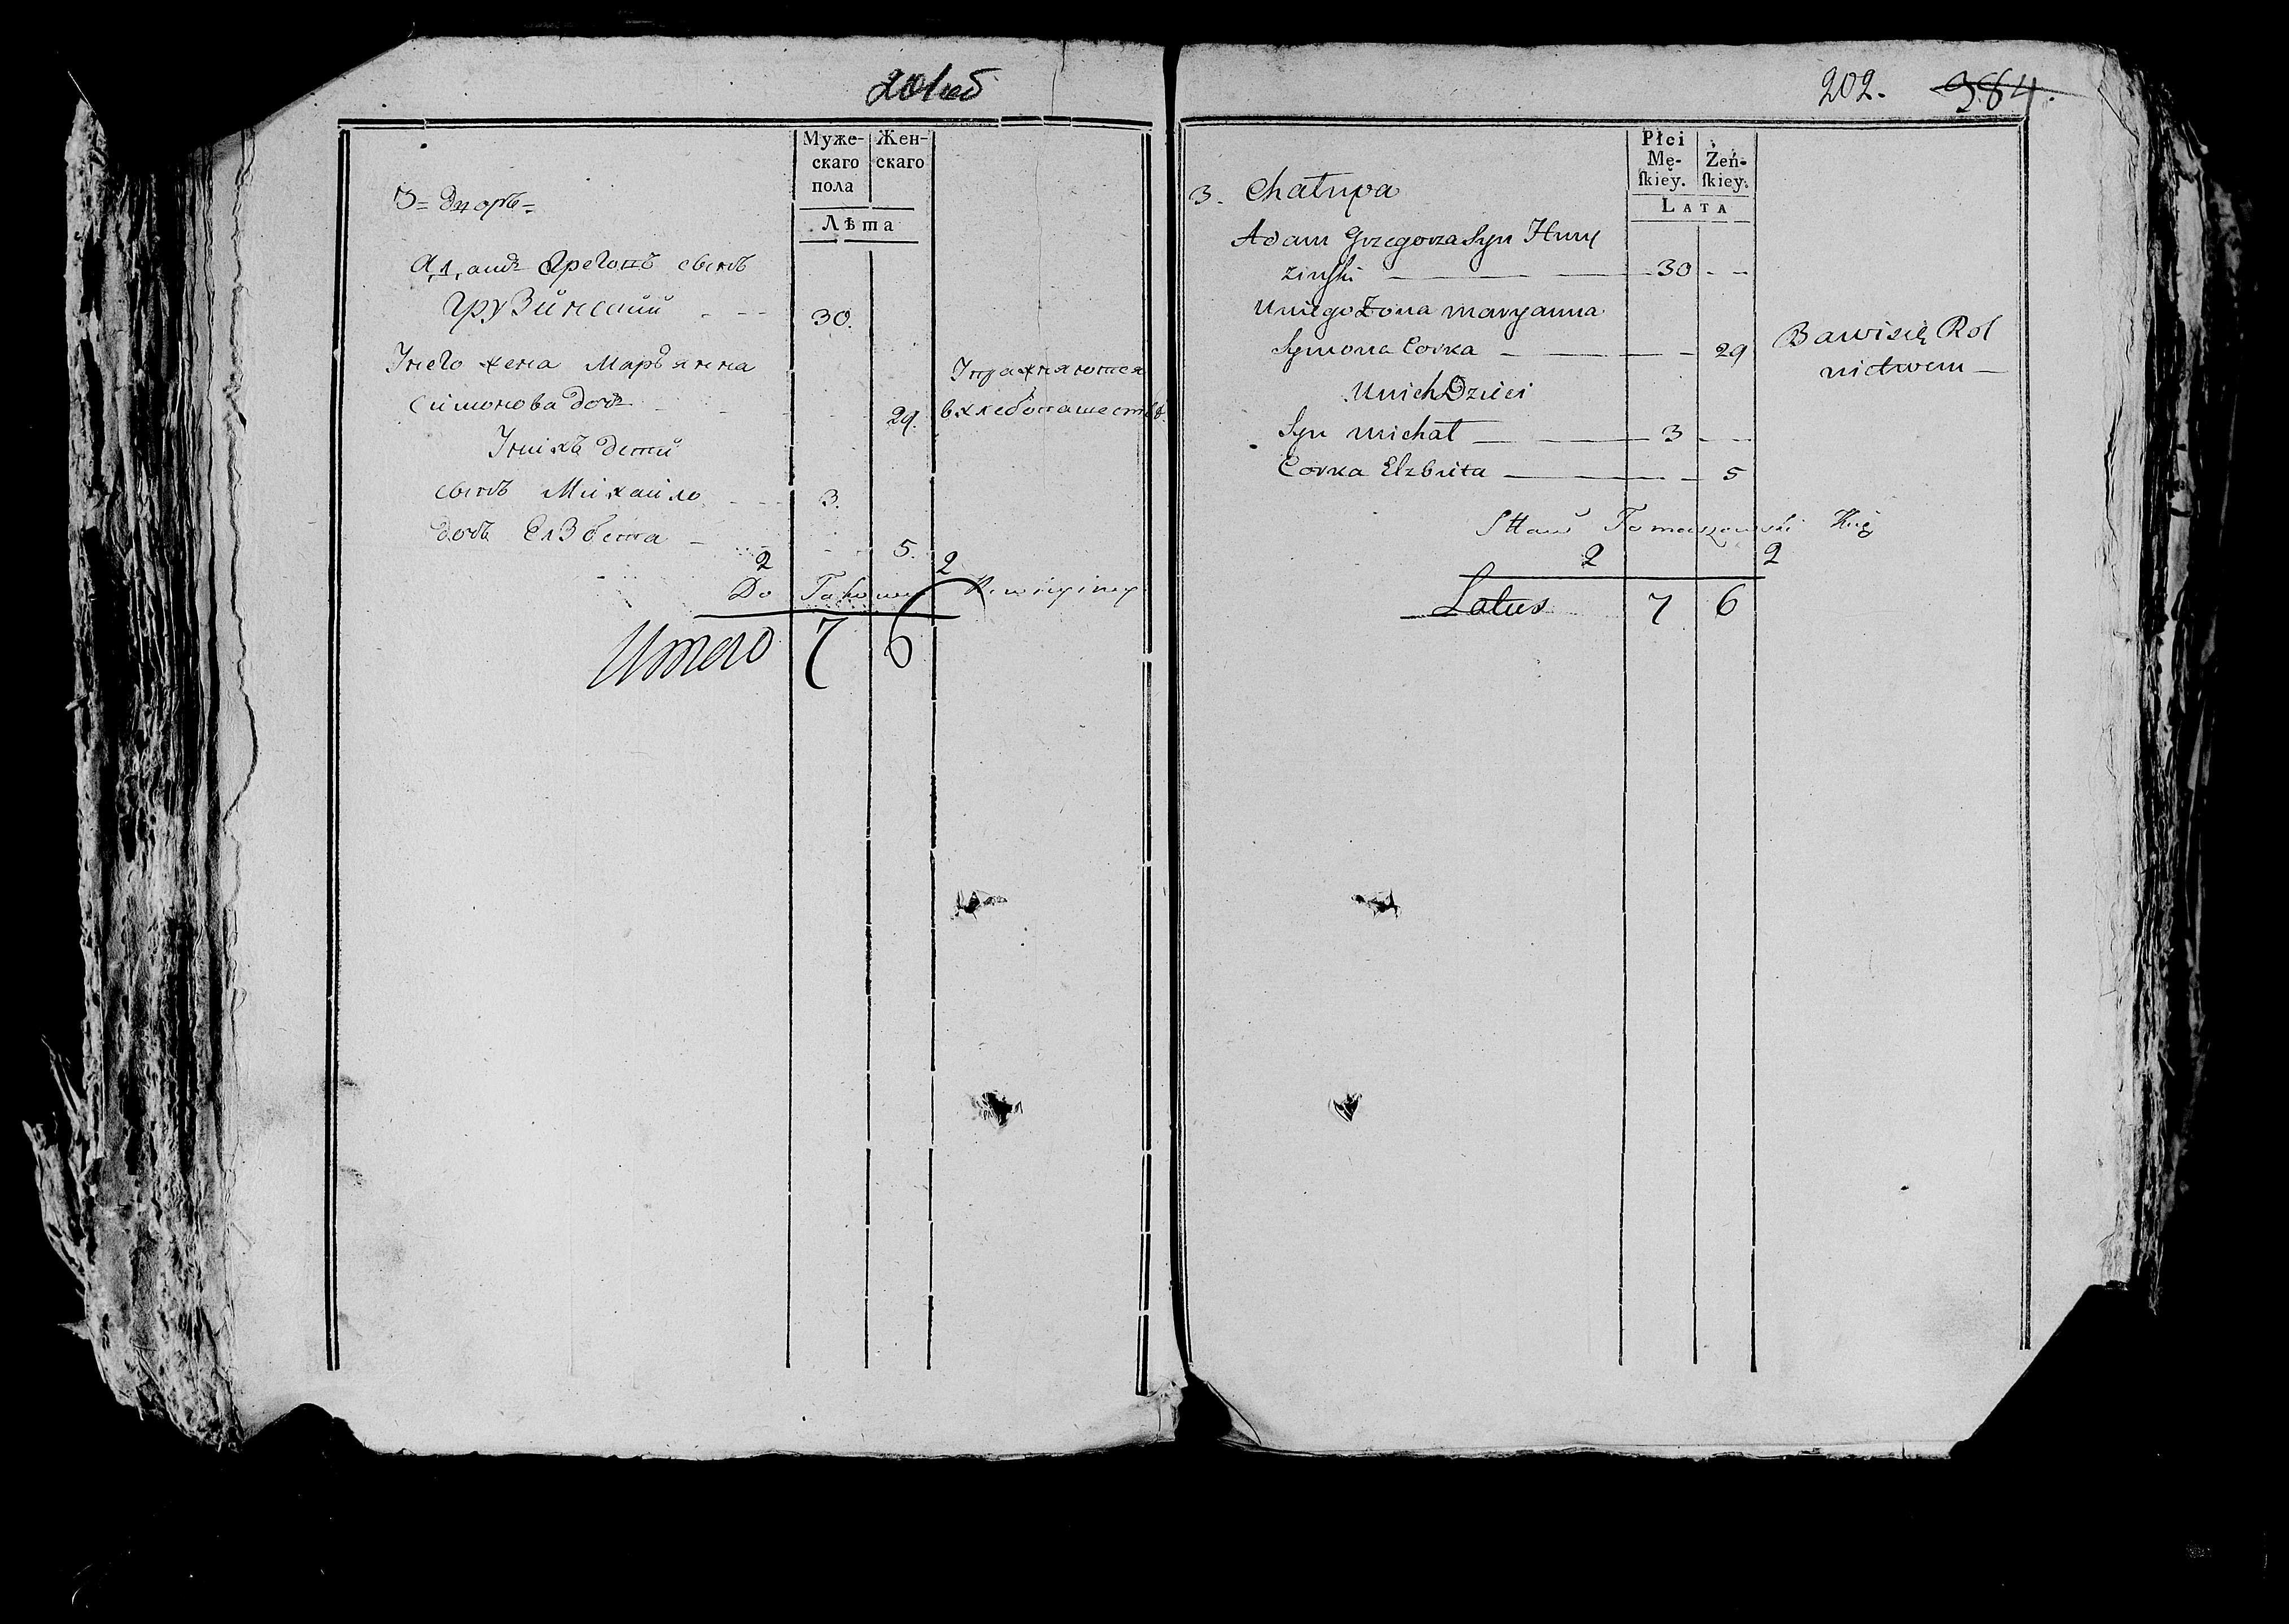 201об
Муже-
скаго
пола
Жен-
скаго
Лѣта
3= дворъ=
Адамъ Грегоръ сынъ
Грузинский 30.
Унего жена Марьянна
Симонова дочь 29.
Упражняются
в хлебопашестве
Унихъ дети
сынъ Михайло 3.
дочь Елзбета 5.
2 2
Do
Итого 7 6
202. 384.
Płci
Mę-
ſkiey.
Żeń-
ſkiey.
LATA
3. Chałupa
Adam Grzegorza Syn
ziński 30
Uniego Żona maryanna
Symona Corka 29
Bawisię Rol
nictwem
Unich Dzieci
Syn michał 3
Corka Elzbieta 5
Tomaszewski
2 2
Latus 7 6